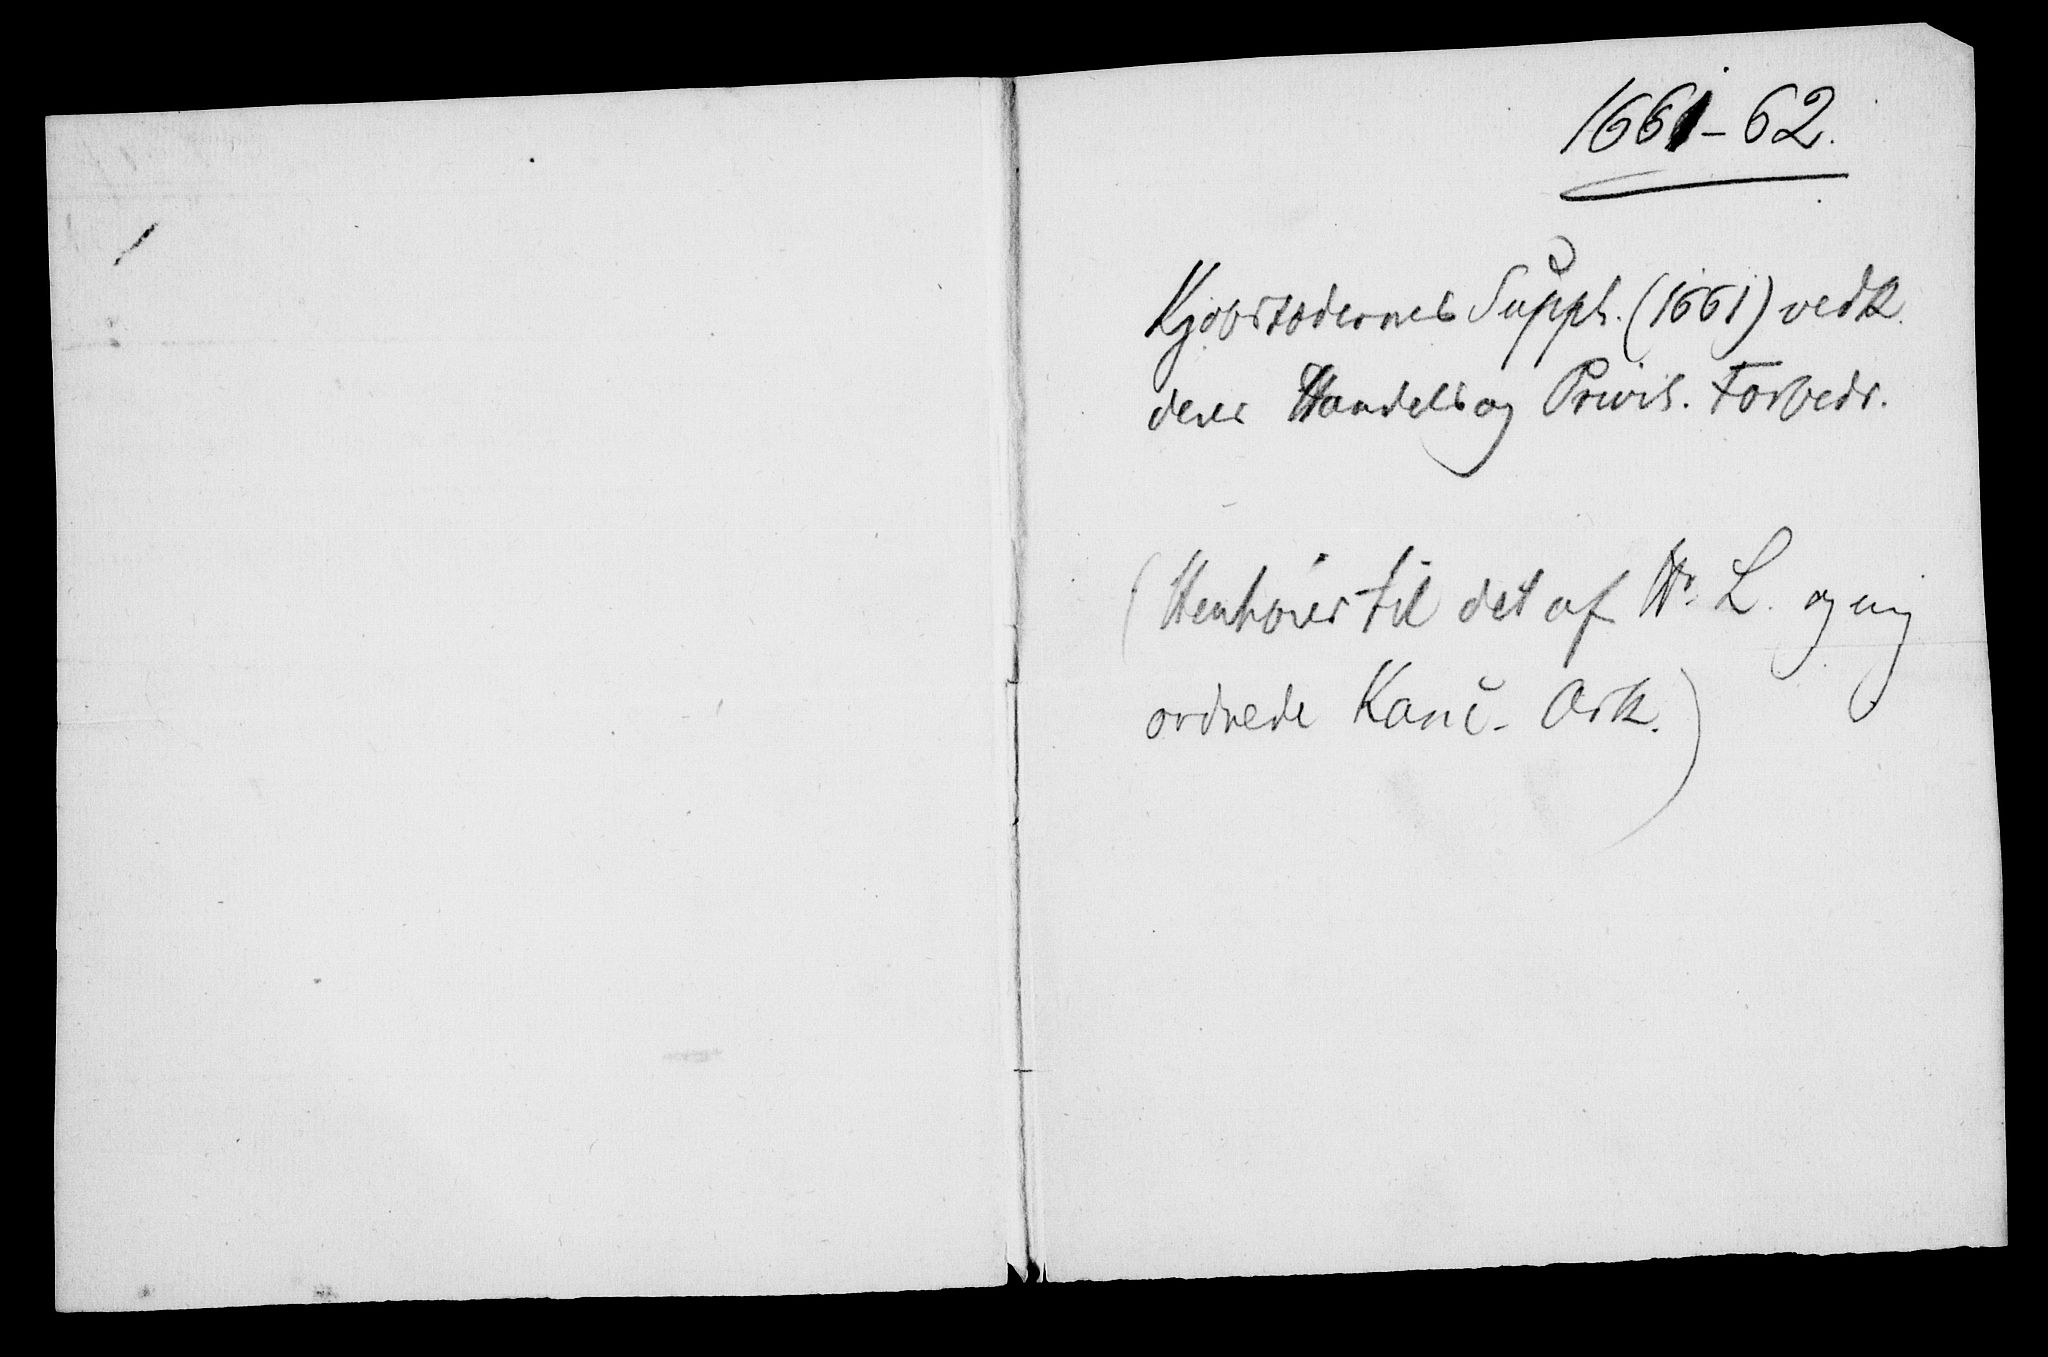 1661-62.
Kjøbstædernes Suppl. (1661) vedk.
deres Handels og Privil. Forbedr.
(Henhører til det af Hr. L. og mig
ordnede Kanc. Ark.)